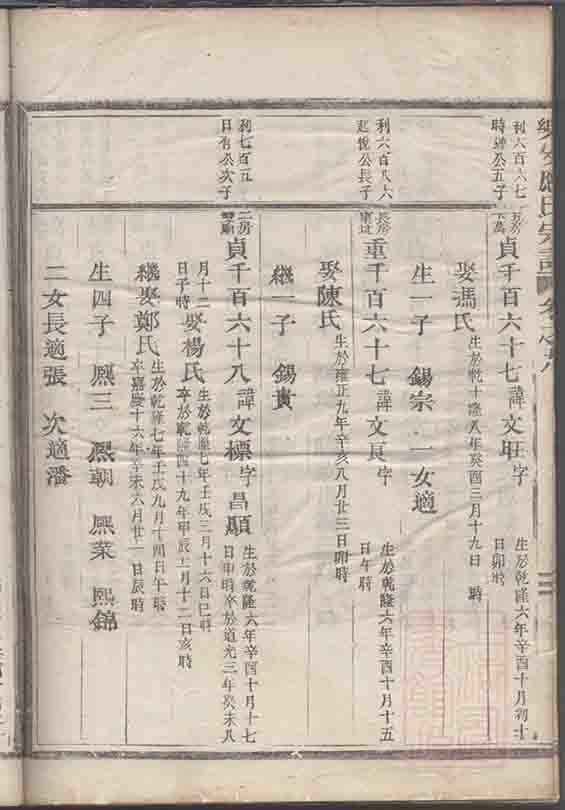 利六百六七
時 公五子
貞千百六十七諱文旺字
生於乾隆六年辛酉十月初十
日卯時
娶馮氏
生於乾隆八年癸酉三月十九日 時
生一子 錫宗 一女適
利六百八六
公長子
長房
重千百六十七諱文良字
生於乾隆六年辛酉十月十五
日午時
娶陳氏
生於雍正九年辛亥八月廿三日卯時
繼一子 錫貴
利七百五
日有公次子
二房
貞千百六十八諱文標字昌顯
生於乾隆六年辛酉十月十七
日申時卒於道光三年癸未八
月十二
日子時
娶楊氏
生於乾隆七年壬戌三月十六日巳時
卒於乾隆四十九年甲辰 月十二日亥時
繼娶鄭氏
生於乾隆七年壬戌九月十四日午時
卒嘉慶十六年辛未六月廿一日辰時
生四子 熙三 熙朝 熙業 熙錦
二女長適張 次適潘